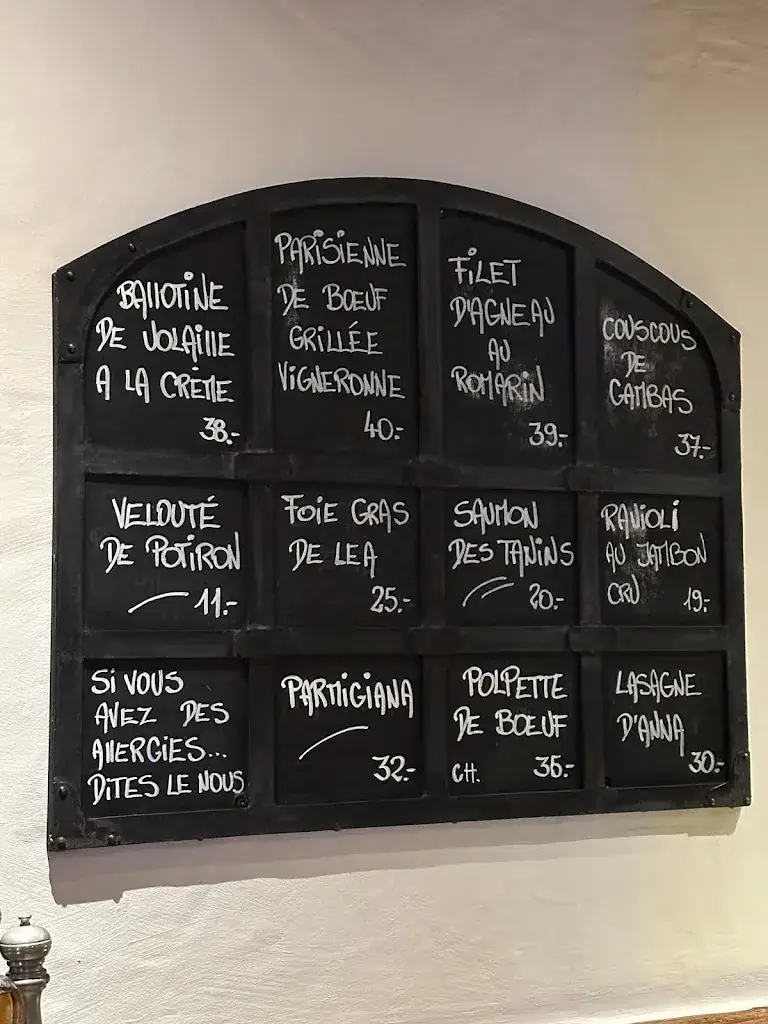 BALLOTINE
DE VOLAILLE
A LA CRÈME
38.-
PARISIENNE
DE BOEUF
GRILLÉE
VIGNERONNE
40.-
FILET
D'AGNEAU
AU
ROMARIN
39.-
COUSCOUS
DE
GAMBAS
37.-
VELOUTÉ
DE POTIRON
11.-
FOIE GRAS
DE LEA
25.-
SAUMON
DES TANINS
20.-
RAVIOLI
AU JAMBON
CRU 19.-
SI VOUS
AVEZ DES
ALLERGIES...
DITES LE NOUS
PARMIGIANA
32.-
POLPETTE
DE BOEUF
CH. 36.-
LASAGNE
D'ANNA
30.-